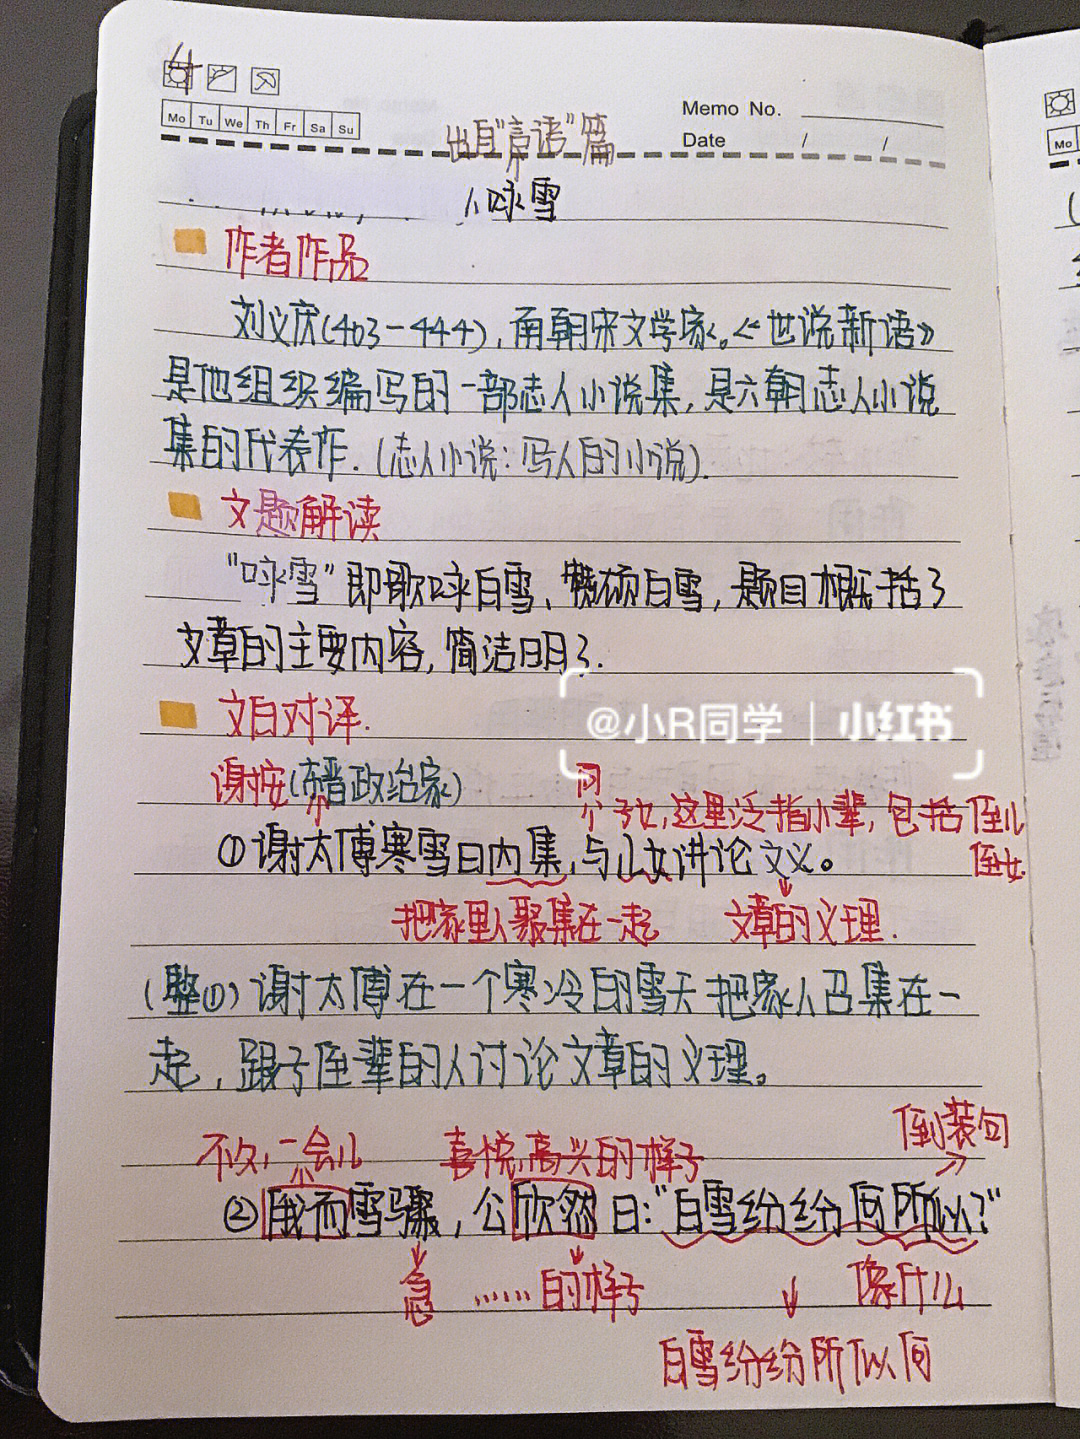 Mo Tu We Th Fr Sa Su
Memo No.
Date / /
出自"言语"篇
咏雪
作者作品
刘义庆(403-444),南朝宋文学家。《世说新语》
是他组织编写的一部志人小说集,是六朝志人小说
集的代表作.(志人小说:写人的小说).
文题解读
"咏雪"即歌咏白雪、赞颂白雪,题目概括了
文章的主要内容,简洁明了.
@小R同学 | 小红书
文白对译.
谢安(东晋政治家)
子女,这里泛指小辈,包括侄儿
侄女
①谢太傅寒雪日内集,与儿女讲论文义。
把家里人聚集在一起 文章的义理.
(整①)谢太傅在一个寒冷的雪天把家人召集在一
起,跟子侄辈的人讨论文章的义理。
倒装句
不久,一会儿 喜悦,高兴的样子
②俄而雪骤,公欣然曰:"白雪纷纷何所似?"
急 ……的样子 像什么
白雪纷纷所似何
Mo